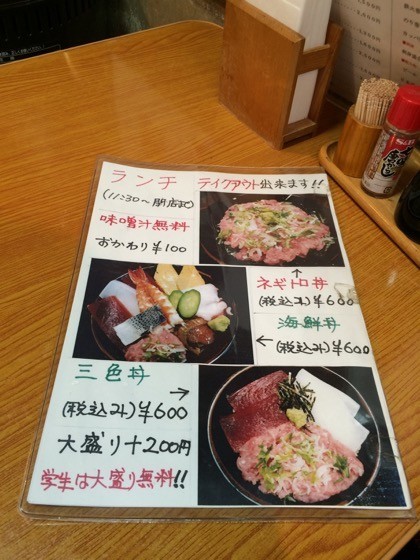 ランチ テイクアウト出来ます!!
(11:30〜閉店迄)
味噌汁無料
おかわり¥100
↑
ネギトロ丼
(税込み)¥600
海鮮丼
←(税込み)¥600
三色丼
→
(税込み)¥600
大盛り+200円
学生は大盛り無料!!
S&B